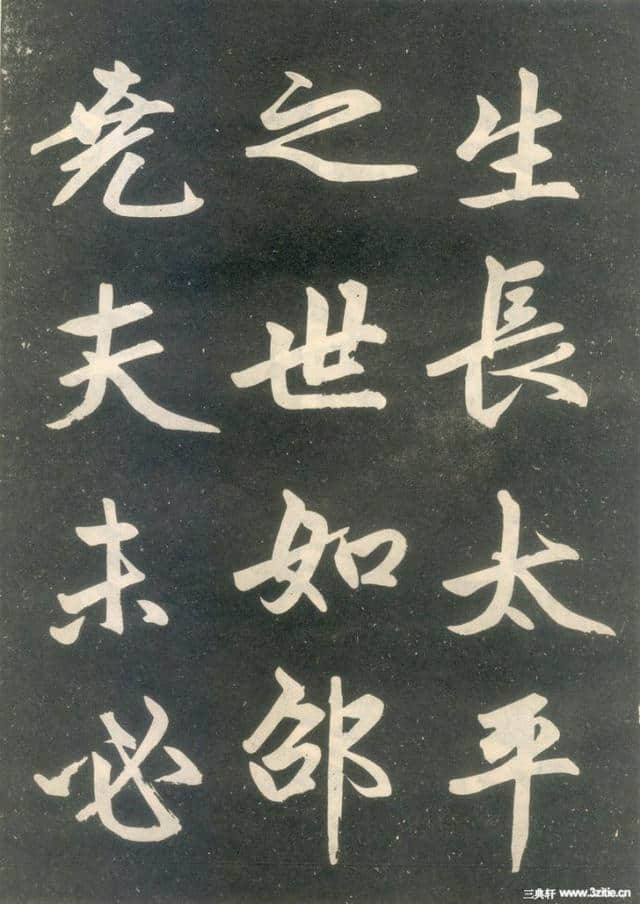 生長太平
之世如邵
堯夫未必
三典轩 www.3zitie.cn